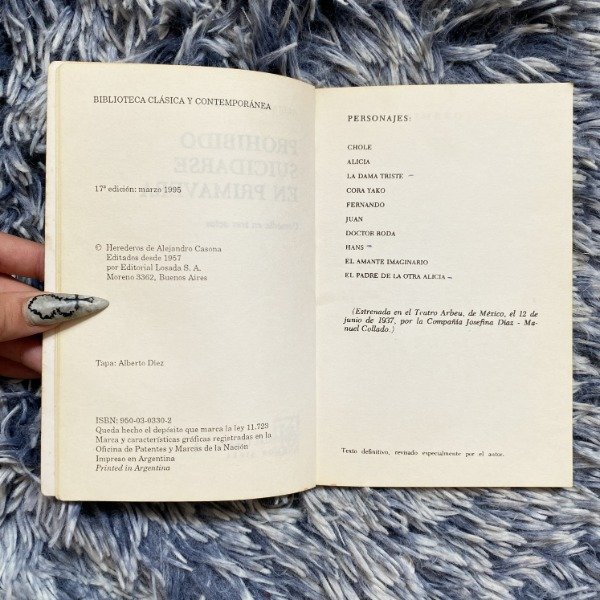 BIBLIOTECA CLÁSICA Y CONTEMPORÁNEA
17ª edición: marzo 1995
© Herederos de Alejandro Casona
Editados desde 1957
por Editorial Losada S. A.
Moreno 3362, Buenos Aires
Tapa: Alberto Diez
ISBN: 950-03-0330-2
Queda hecho el depósito que marca la ley 11.723
Marca y características gráficas registradas en la
Oficina de Patentes y Marcas de la Nación
Impreso en Argentina
Printed in Argentina
PERSONAJES:
CHOLE
ALICIA
LA DAMA TRISTE
CORA YAKO
FERNANDO
JUAN
DOCTOR RODA
HANS
EL AMANTE IMAGINARIO
EL PADRE DE LA OTRA ALICIA
(Estrenada en el Teatro Arbeu, de México, el 12 de
junio de 1937, por la Compañía Josefina Díaz - Ma-
nuel Collado.)
Texto definitivo, revisado especialmente por el autor.
PROHIBIDO
SUICIDARSE
EN PRIMAVERA
Comedia en tres actos